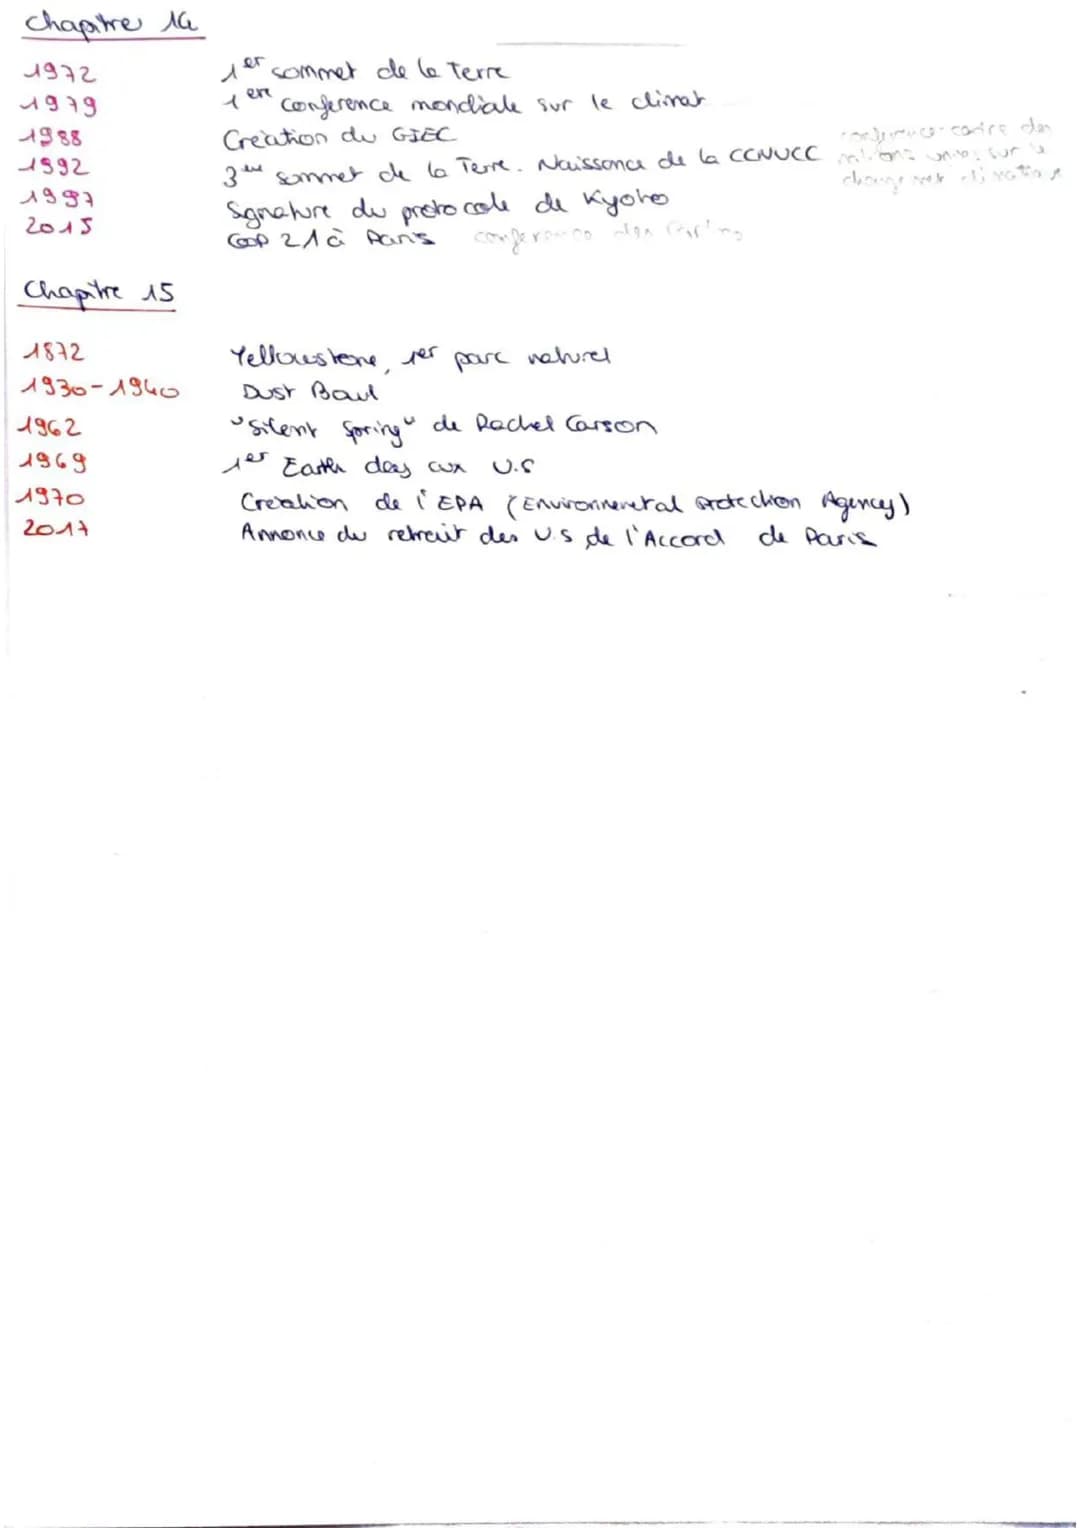 Chapitre 14
1972 1er sommet de la Terre
1979 1ere conference mondiale sur le climat
1988 Création du GIEC
1992 3eme sommet de la Terre. Naissance de la CCNUCC conference-cadre des
nations unies sur le
changement climatique
1997 Signature du protocole de Kyoto
2015 COP 21 à Paris conference des Parties
Chapitre 15
1872 Yellowstone, 1er parc naturel
1930-1940 Dust Bowl
1962 "Silent Spring" de Rachel Carson
1969 1er Earth day aux U.S
1970 Création de l'EPA (Environnemental Protection Agency)
2017 Annonce du retrait des U.S de l'Accord de Paris